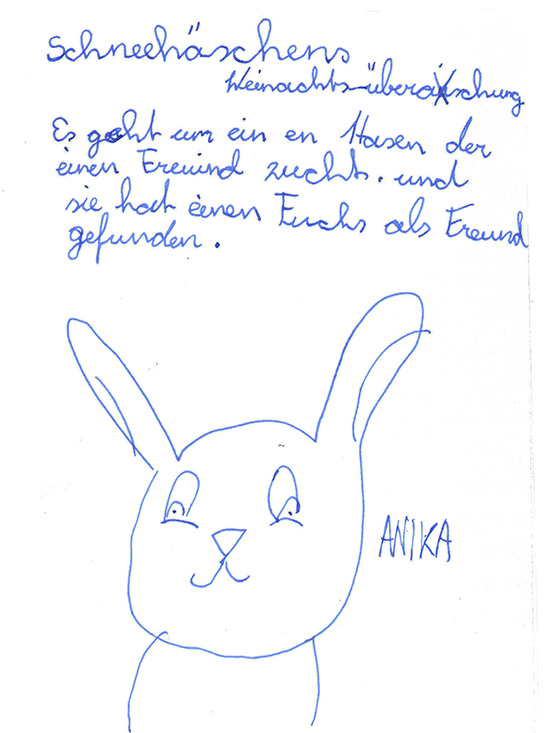 Schneehäschens
Weinachts-überaschung
Es geht um ein en Hasen der
einen Freund zucht. und
sie hat einen Fuchs als Freund
gefunden.
ANIKA